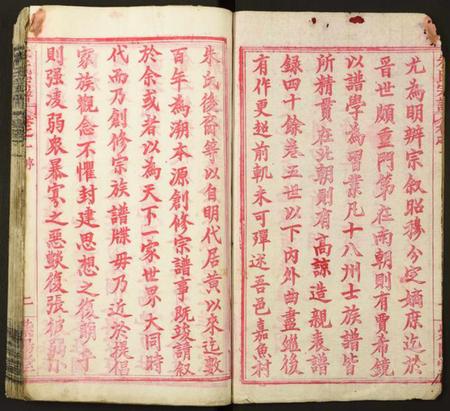 尤為明辨宗敘昭穆分定嫡庶迄於
晉世頗重門第在南朝則有賈希鏡
以譜學為習業凡十八州士族譜皆
所精貫在北朝則有高諒造親表譜
錄四十餘卷五世以下內外曲盡繼後
有作更超前軌未可殫述吾邑嘉魚村
朱氏後裔等以自明代居黃以來迄數
百年為溯本源創修宗譜事既竣請敘
於余或者以為天下一家世界大同時
代而乃創修宗族譜牒毋乃近於提倡
家族觀念不懼封建思想之復萌乎
則强凌弱衆暴寡之惡
復張